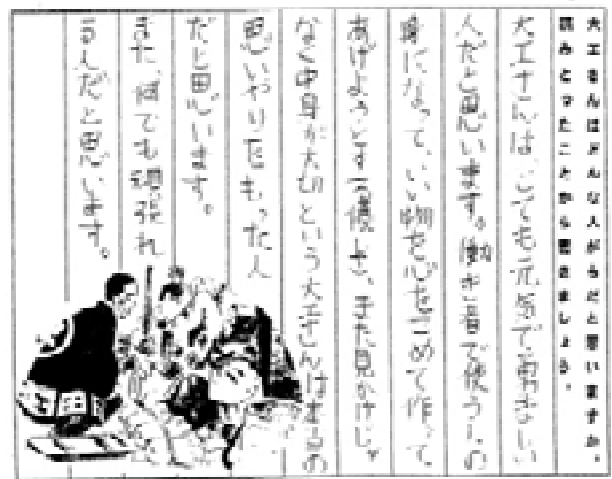 大工さんはどんな人がらだと思いますか。
読みとったことから書きましょう。
大工さんは、とても元気で勇ましい
人だと思います。働き者で使う人の
身になって、いい物を心をこめて作って、
あげようとする優しさ、また見かけじゃ
なく中身が大切という大工さんは
思いやりをもった人
だと思います。
また、何でも頑張れ
るんだと思います。